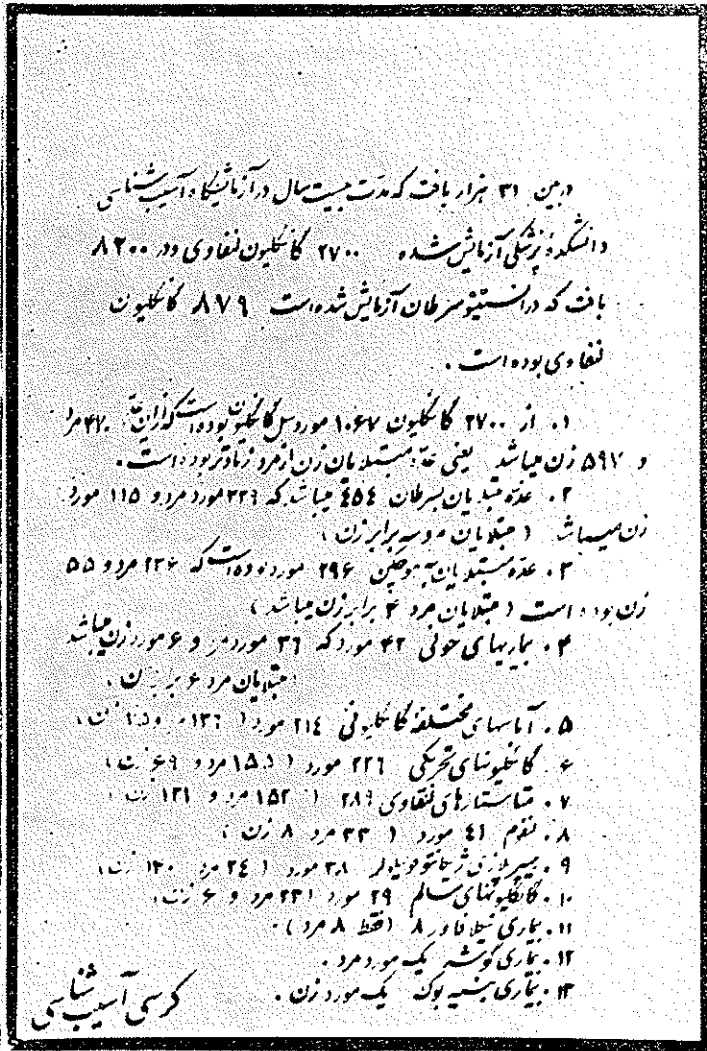 در بین ۳۱ هزار بافت که مدت بیست سال در آزمایشگاه آسیب شناسی
دانشکدهٔ پزشکی آزمایش شده ۲۷۰۰ گانگلیون لنفاوی و در ۸۲۰۰
بافت که در انستیتو سرطان آزمایش شده است ۸۷۹ گانگلیون
لنفاوی بوده است .
۱. از ۲۷۰۰ گانگلیون ۱۰۶۷ مورد سل گانگلیون بوده است که از این عده ۴۷۰ مرد
و ۵۹۷ زن میباشد یعنی عدهٔ مبتلایان زن از مرد زیادتر بوده است .
۲. عدهٔ مبتلایان بسرطان ٤٥٤ میباشد که ۳۳۹ مورد مرد و ۱۱۵ مورد
زن میباشد ( مبتلایان مرد سه برابر زن )
۳. عدهٔ مبتلایان به هوچکین ۲۹۶ مورد بوده است که ۲۳۶ مرد و ۵۵
زن بوده است ( مبتلایان مرد ۴ برابر زن میباشد )
۴. بیماریهای خونی ۴۲ مورد که ۳٦ مورد مرد و ۶ مورد زن میباشد
مبتلایان مرد ۶ برابر زن .
۵. آماسهای مختلفه گانگلیونی ۲۱٤ مورد (
۶. گانگلیونهای تحریکی ۲۲٦ مورد ( ۱۵۵ مرد و ۶۹ زن )
۷. متاستازهای لنفاوی ۲۸۹ ( ۱۵۲ مرد و ۱۳۱ زن )
۸. لنفوم ٤١ مورد ( ۳۳ مرد ۸ زن )
۹. ۳۸ مورد ( ۲٤ مرد
۱۰. گانگلیونهای سالم ۲۹ مورد ( ۲۳ مرد و ۶ زن )
۱۱. بیماری ۸ ( فقط ۸ مرد ) .
۱۲. بیماری گوشه یک مورد مرد .
۱۳. بیماری یک مورد زن .
کرسی آسیب شناسی